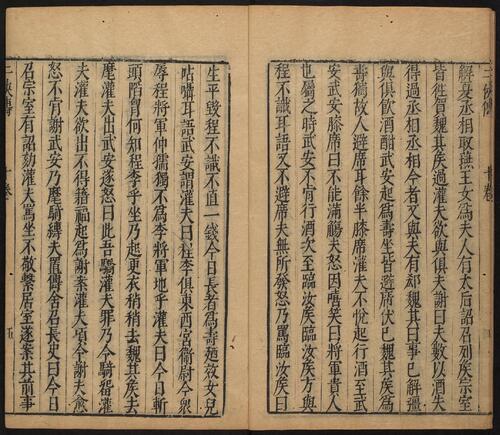 解夏丞相取燕王女為夫人有太后詔召列矦宗室
皆徃賀魏其矦過灌夫欲與俱夫謝曰夫數以酒失
得過丞相丞相今者又與夫有郄魏其曰事已解彊
與俱飲酒酣武安起為壽坐皆避席伏已魏其矦為
壽獨故人避席耳餘半膝席灌夫不悅起行酒至武
安武安膝席曰不能滿觴夫怒因嘻笑曰將軍貴人
也屬之時武安不肯行酒次至臨汝矦臨汝矦方與
程不識耳語又不避席夫無所發怒乃罵臨汝矦曰
生平毀程不識不直一錢今日長者為壽廼效女兒
呫囁耳語武安謂灌夫曰程李俱東西宮衛尉今衆
辱程將軍仲孺獨不為李將軍地乎灌夫曰今日斬
頭陷胷何知程李乎坐乃起更衣稍稍去魏其矦去
麾灌夫出武安遂怒曰此吾驕灌夫罪乃令騎留灌
夫灌夫欲出不得籍福起為謝案灌夫項令謝夫愈
怒不肯謝武安乃麾騎縛夫置傳舍召長史曰今日
召宗室有詔劾灌夫罵坐不敬繫居室遂案其前事